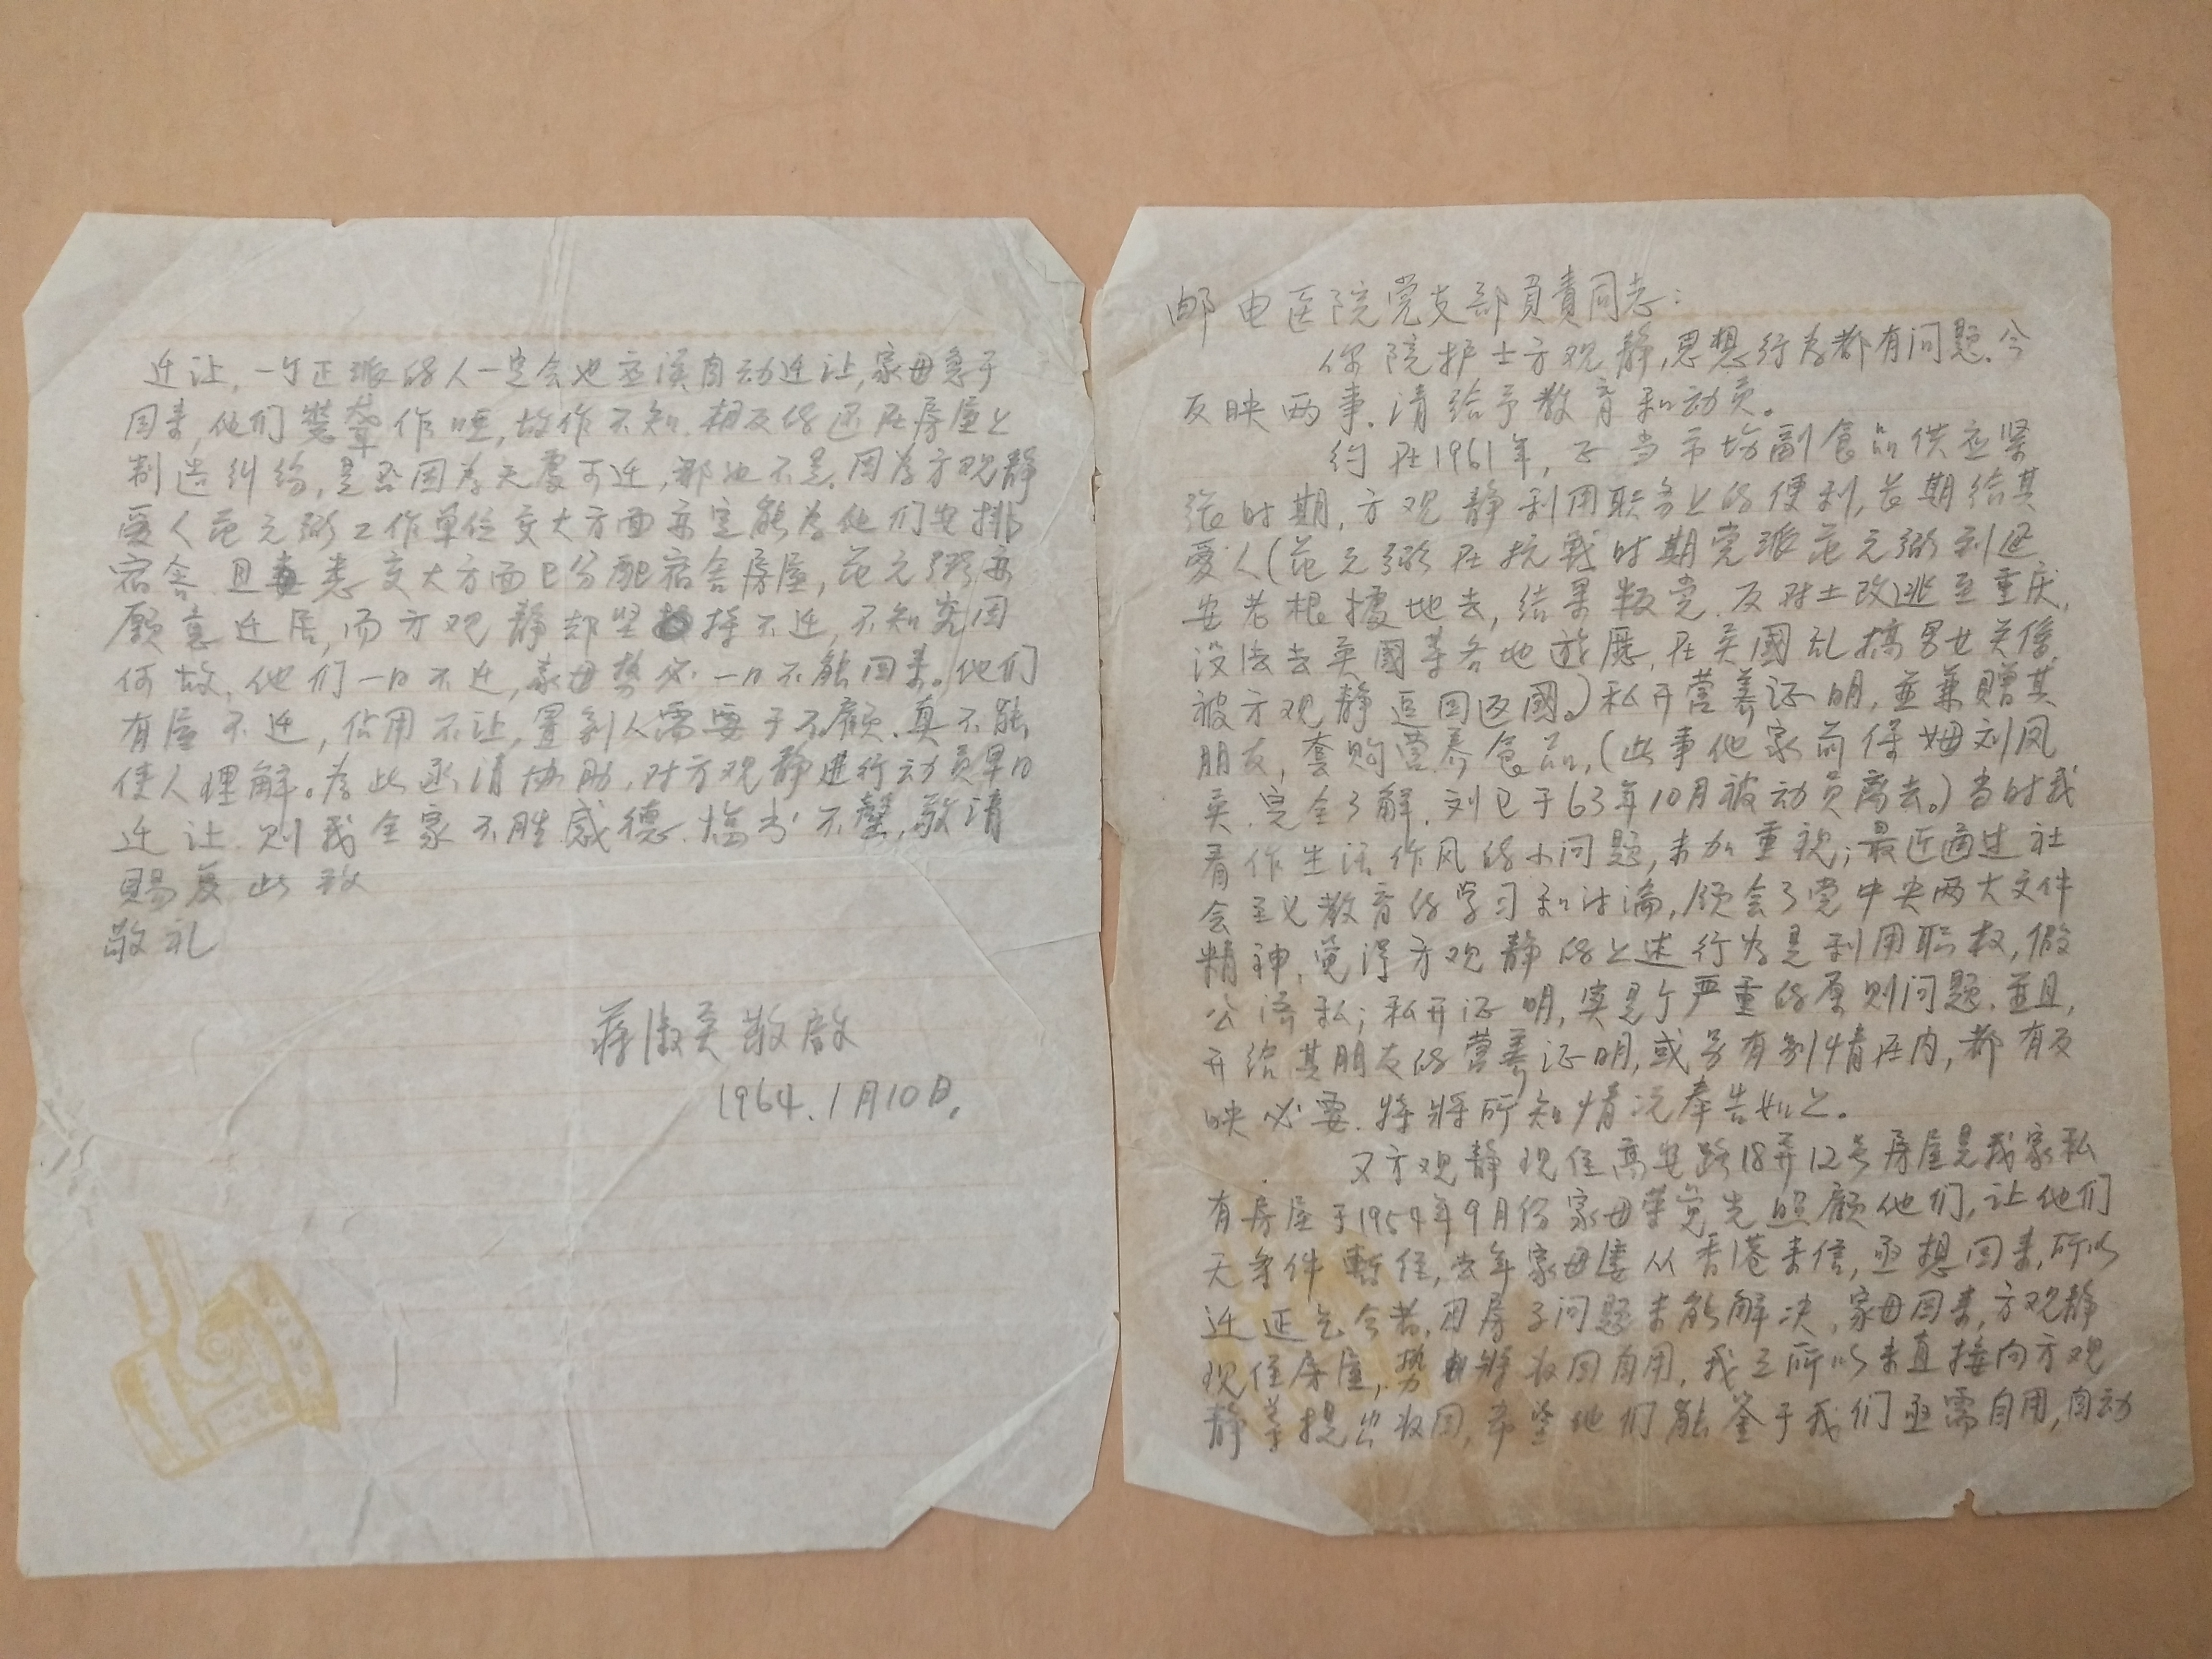 邮电医院党支部負責同志：
你院护士方观静，思想行为都有问题，今
反映两事，请给予教育和动员。
约在1961年，正当市场副食品供应紧
张时期，方观静利用职务上的便利，长期给其
爱人（范元弼在抗战时期党派范元弼到延
安老根據地去，结果叛党，反对土改逃至重庆，
设法去英國等各地遊歷，在英國乱搞男女关係，
被方观静逗回返國。）私开营养证明，並兼赠其
朋友，套购营养食品，（此事他家前保姆刘凤
英，完全了解，刘已于63年10月被动员离去。）当时我
看作生活作风的小问题，未加重视；最近通过社
会主义教育的学习和讨論，领会了党中央两大文件
精神，觉得方观静的上述行为是利用职权，假
公济私；私开证明，实是个严重的原则问题，並且，
开给其朋友的营养证明，或另有别情在内，都有反
映必要，特将所知情况奉告如上。
又方观静现住高安路18弄12号房屋是我家私
有房屋于1954年9月份家母荣党光照顾他们，让他们
无条件暫住，去年家母屡从香港来信，亟想回来，所以
迁延至今者，因房子问题未能解决，家母回来，方观静
现住房屋，势将收回自用，我之所以未直接向方观
静等提出收回，希望他们能鉴于我们亟需自用，自动
迁让，一个正派的人一定会也应该自动迁让，家母急于
回来，他们装聋作哑，故作不知，相反的还在房屋上
制造纠纷，是否因为无处可迁，那也不是，因为方观静
爱人范元弼工作单位交大方面亦定能为他们安排
宿舍，且悉交大方面已分配宿舍房屋，范元弼亦
愿意迁居，而方观静却坚持不迁，不知究因
何故，他们一日不迁，家母势必一日不能回来。他们
有屋不迁，佔用不让，置别人需要于不顾，真不能
使人理解。为此函请协助，对方观静进行动员早日
迁让，则我全家不胜感德，临书不罄，敬请
赐复此致
敬礼
蒋淑英敬啟
1964.1月10日.